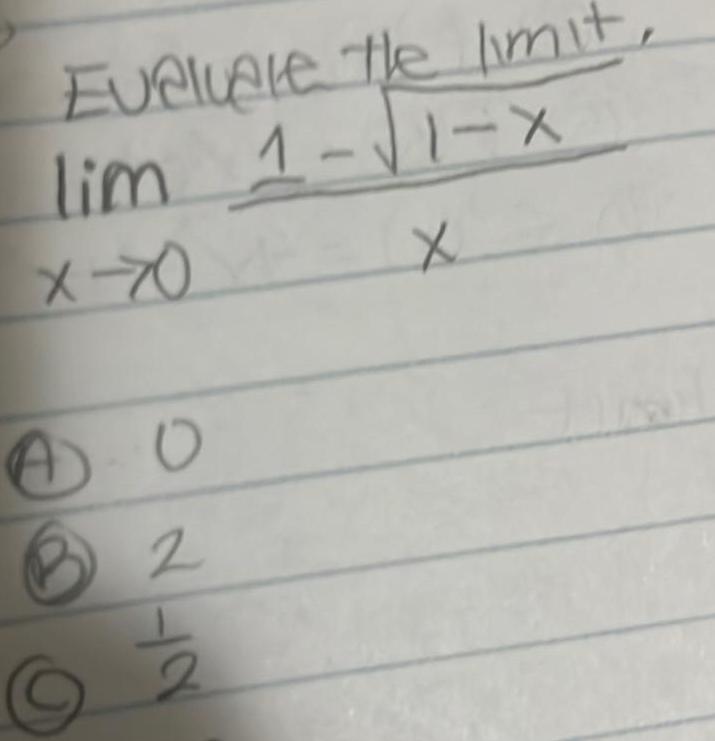 Evaluate the limit.
lim 1 - √1 - x
x→0 x
A 0
B 2
C 1/2